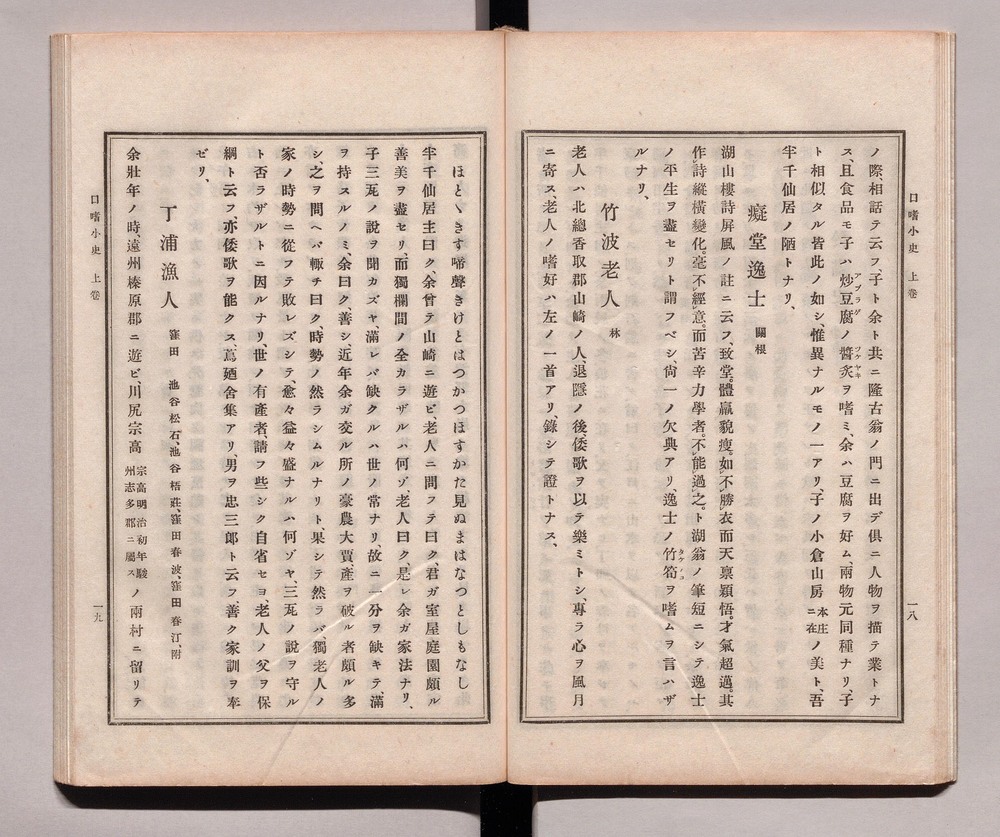 口嗜小史　上卷
一八
ノ際、相話テ云フ、子ト余ト共ニ隆古翁ノ門ニ出デ俱ニ人物ヲ描テ業トナ
ス、且食品モ子ハ炒豆腐ノ醬炙ヲ嗜ミ、余ハ豆腐ヲ好ム、兩物元同種ナリ、子
アブラゲ　ツケヤキ
ト相似タル皆此ノ如シ、惟異ナルモノ一アリ、子ノ小倉山房本庄ニ在ノ美ト、吾
半千仙居ノ陋トナリ、
癡堂逸士　關根
湖山樓詩屏風ノ註ニ云フ、致堂。體羸貌瘦。如不勝衣而天禀穎悟。才氣超邁。其
作詩縱橫變化。毫不經意。而苦辛力學者。不能過之。ト湖翁ノ筆短ニシテ逸士
ノ平生ヲ盡セリト謂フベシ、尙一ノ欠典アリ、逸士ノ竹筍ヲ嗜ムヲ言ハザ
タケノコ
ルナリ、
竹波老人　林
老人ハ北總香取郡山崎ノ人、退隱ノ後、倭歌ヲ以テ樂ミトシ、專ラ心ヲ風月
ニ寄ス、老人ノ嗜好ハ左ノ一首アリ、錄シテ證トナス、
ほとゝきす啼聲きけとはつかつほすかた見ぬまはなつとしもなし
半千仙居主曰ク、余曾テ山崎ニ遊ビ、老人ニ問フテ曰ク、君ガ室屋庭園頗ル
善美ヲ盡セリ、而獨欄間ノ全カラザルハ何ゾ、老人曰ク、是レ余ガ家法ナリ、
子三瓦ノ說ヲ聞カズヤ、滿レバ缺クルハ世ノ常ナリ、故ニ一分ヲ缺キテ滿
ヲ持スルノミ、余曰ク善シ、近年余ガ交ル所ノ豪農大賈、產ヲ破ル者頗ル多
シ、之ヲ問ヘバ輙チ曰ク、時勢ノ然ラシムルナリト、果シテ然ラバ、獨老人ノ
家ノ時勢ニ從フテ敗レズシテ、愈々益々盛ナルハ何ゾヤ、三瓦ノ說ヲ守ル
ト否ラザルトニ因ルナリ、世ノ有產者、請フ些シク自省セヨ、老人ノ父ヲ保
綱ト云フ、亦倭歌ヲ能クス、蔦廼舍集アリ、男ヲ忠三郎ト云フ善ク家訓ヲ奉
ゼリ、
丁浦漁人　窪田　池谷松石、池谷梧莊、窪田春波、窪田春汀、附
余壯年ノ時、遠州榛原郡ニ遊ビ、川尻宗高宗高明治初年駿州志多郡ニ屬スノ兩村ニ留リテ
口嗜小史　上卷
一九